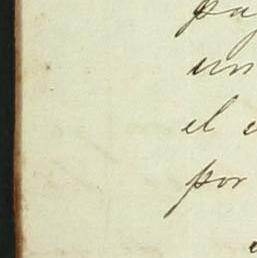 pa
un
el
por